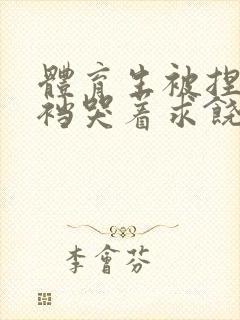 體育生被捏
裆哭着求饶
李會芬